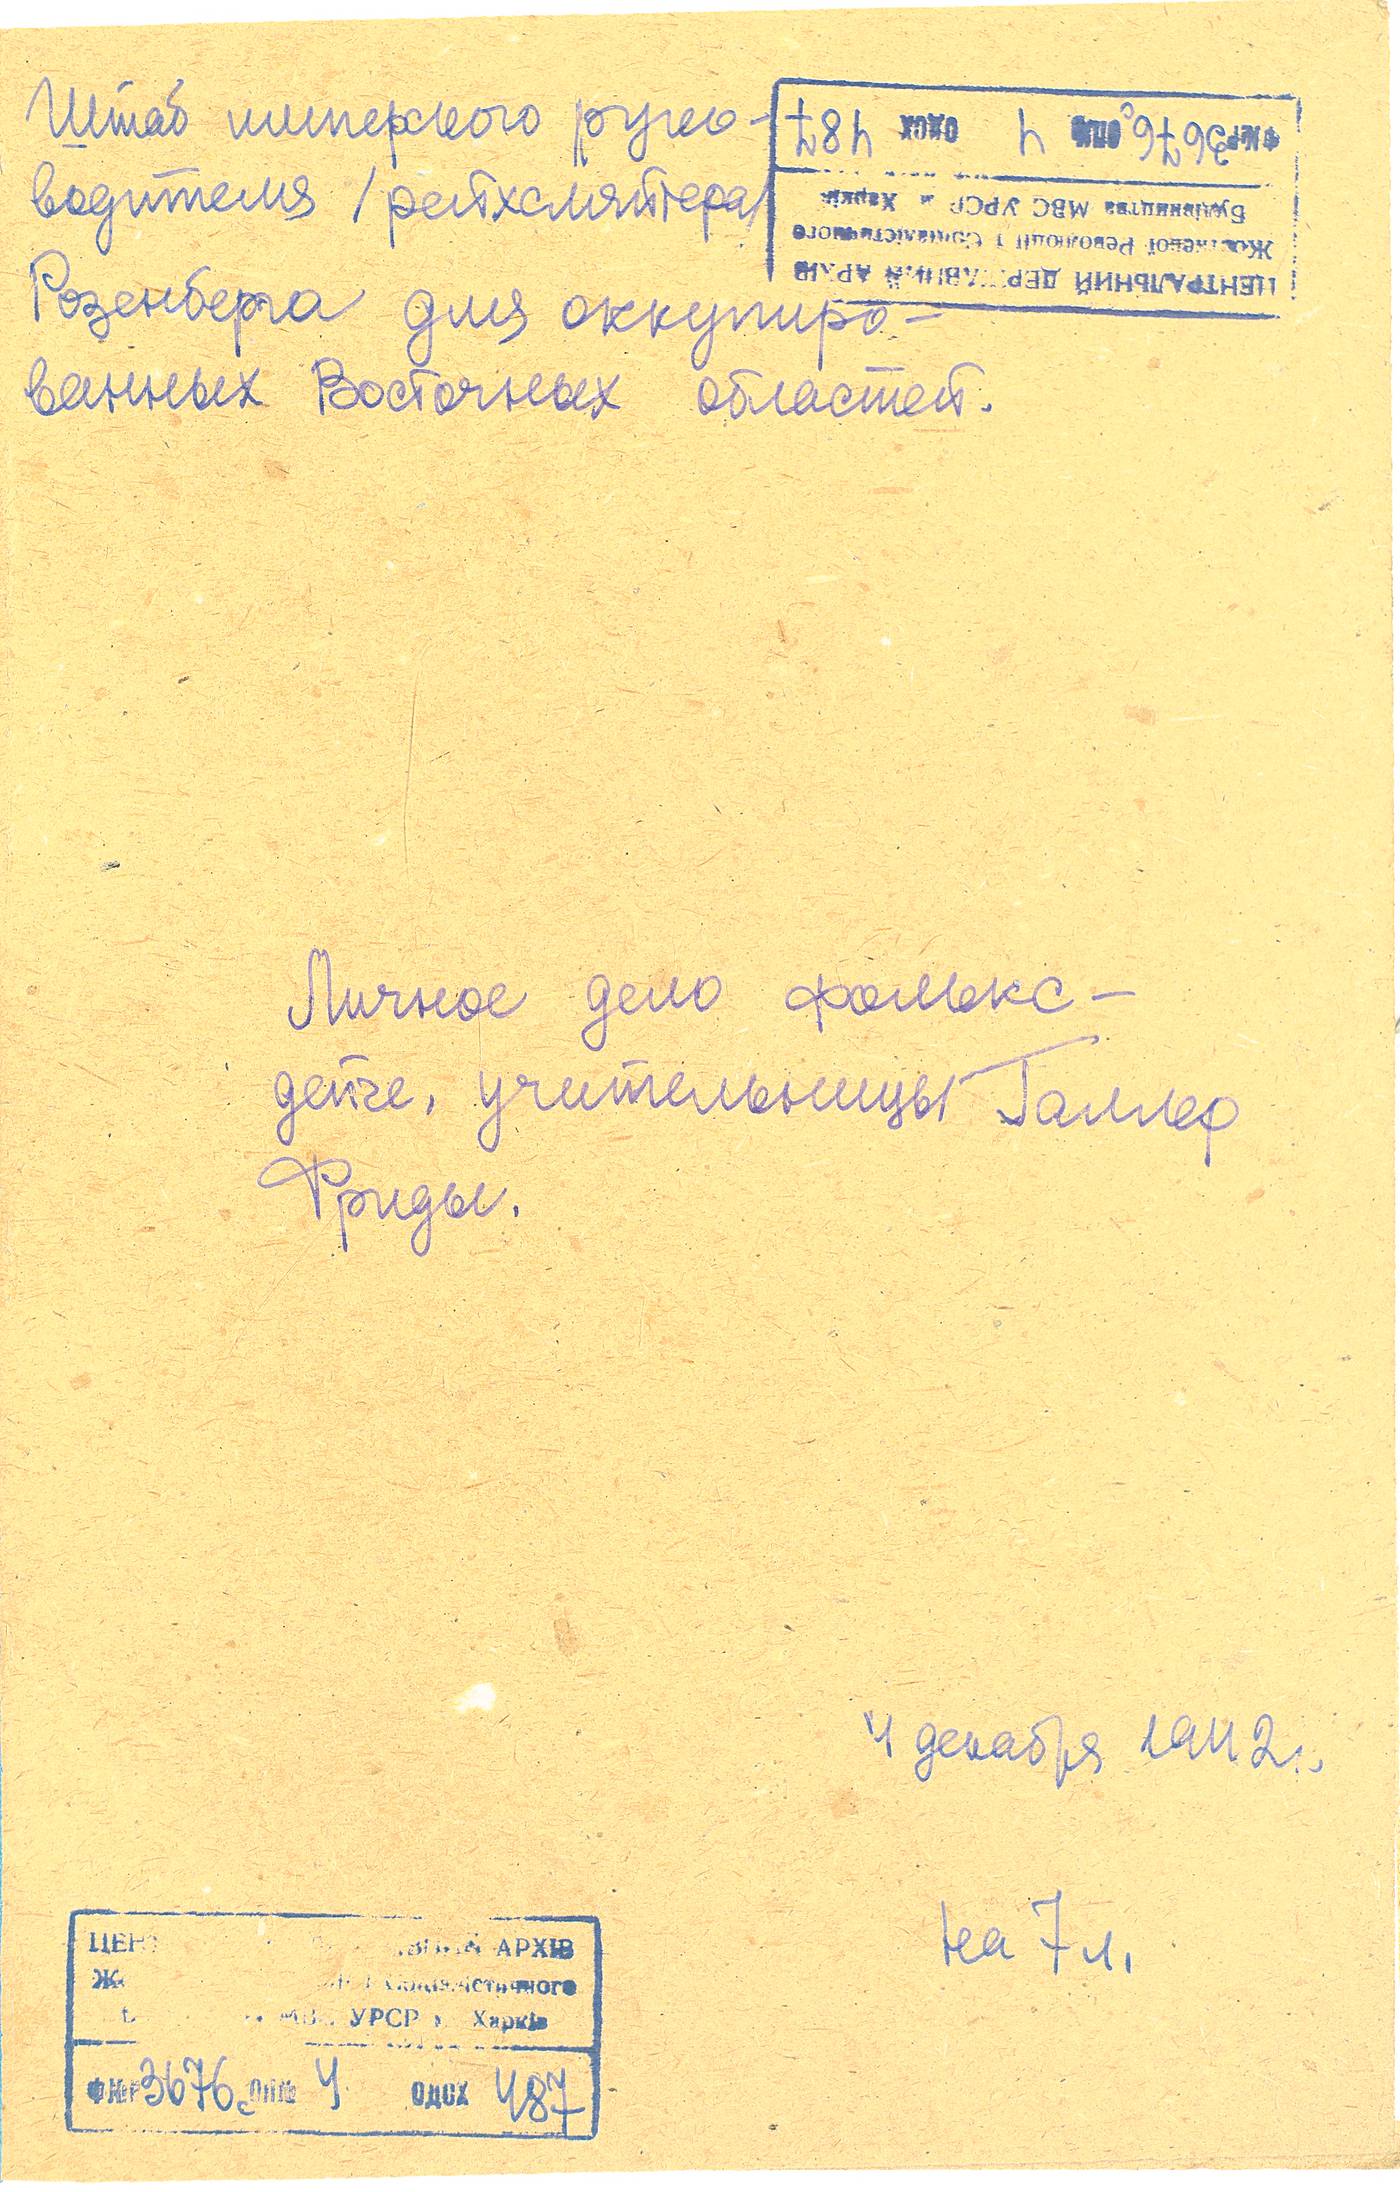 Штаб имперского руко-
водителя /рейхсляйтера/
Розенберга для оккупиро-
ванных Восточных областей.
ЦЕНТРАЛЬНИЙ ДЕРЖАВНИЙ АРХІВ
Жовтневої Революції і Соціалістичного
Будівництва МВС УРСР м. Харків
Ф№Р3676с ОП№ 4 ОДСХ 487
Личное дело фолькс-
дейче, учительницы Галлер
Фриды.
4 декабря 1942 г.
на 7 л.
АРХІВ
Соціалістичного
УРСР м. Харків
Ф№Р3676с ОП№ 4 ОДСХ 487